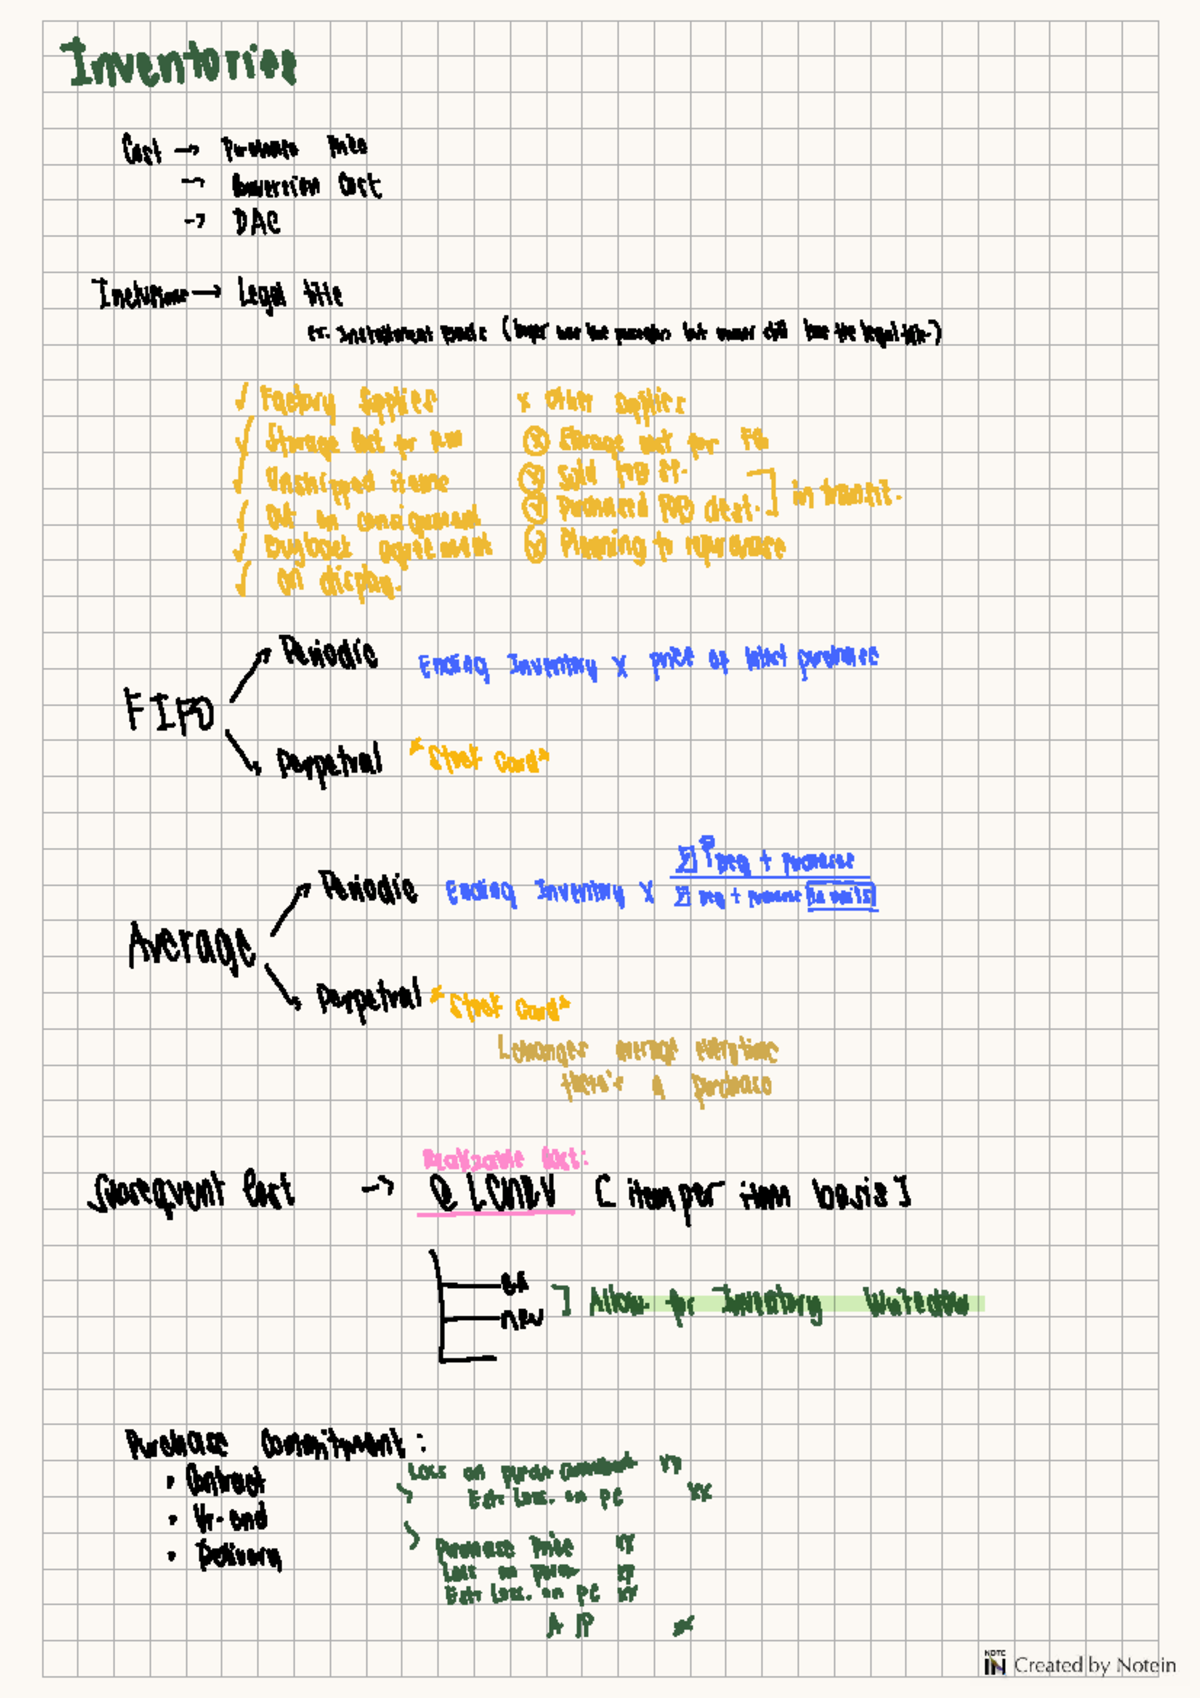 Inventories
Cost → Purchase Price
→ Conversion Cost
→ DAC
Inclusions → Legal title
ex. Installment basis (buyer has the but owner still has the legal title)
✓ Factory Supplies x Other supplies
✓ Storage Cost for RM ⓧ Storage cost for FG
✓ Unshipped items ⓧ Sold FOB SP.
✓ Out on consignment ⓧ Purchased FOB dest. ] in transit.
✓ Buyback agreement ⓧ Planning to repurchase
✓ on display.
Periodic Ending Inventory x price of latest purchase
FIFO
Perpetual *Stock Card*
Σ P beg + purchase
Periodic Ending Inventory x Σ beg + purchase (in units)
Average
Perpetual *Stock Card*
changes average everytime
there's a purchase
Realizable Cost:
Subsequent Cost → @ LCNRV [item per item basis]
NRV ] Allow for Inventory Writedown
Purchase Commitment:
• Contract Loss on purch commitment xx
• Yr-end Est. Loss. on PC xx
• Delivery Purchase Price xx
Loss on purch xx
Est. Loss. on PC xx
A/P xx
NOTE IN Created by Notein